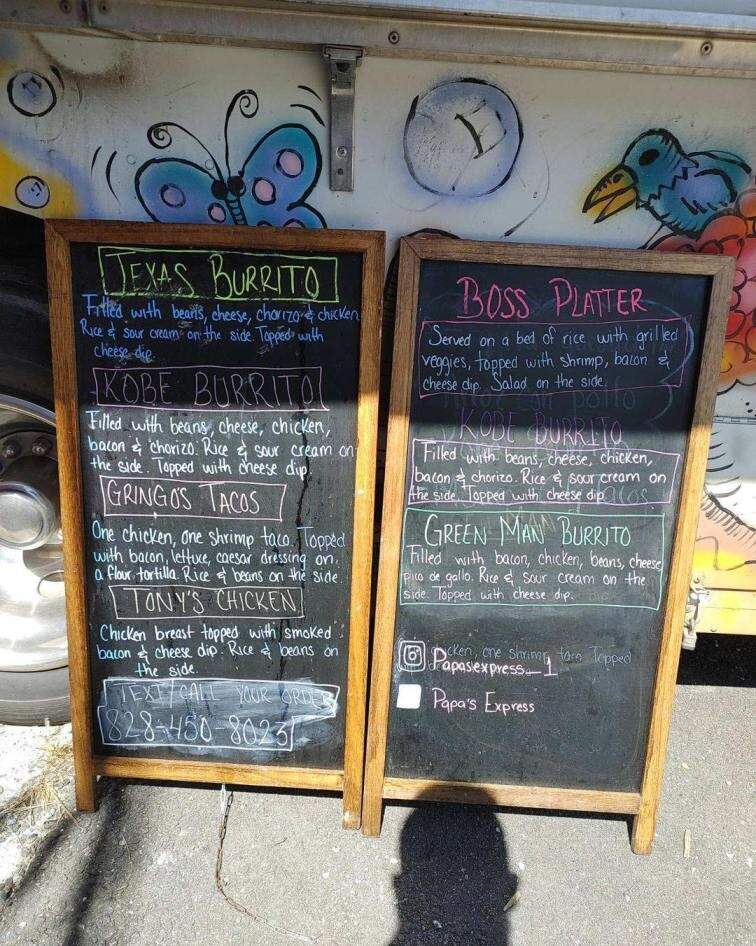 TEXAS BURRITO
Filled with beans, cheese, chorizo & chicken
Rice & sour cream on the side. Topped with
cheese dip
KOBE BURRITO
Filled with beans, cheese, chicken,
bacon & chorizo. Rice & sour cream on
the side. Topped with cheese dip
GRINGOS TACOS
One chicken, one shrimp taco. Topped
with bacon, lettuce, caesar dressing on
a flour tortilla. Rice & beans on the side.
TONY'S CHICKEN
Chicken breast topped with smoked
bacon & cheese dip. Rice & beans on
the side.
TEXT/CALL YOUR ORDER
828-450-8023
BOSS PLATTER
Served on a bed of rice with grilled
veggies, topped with shrimp, bacon &
cheese dip. Salad on the side.
KOBE BURRITO
Filled with beans, cheese, chicken,
bacon & chorizo. Rice & sour cream on
the side. Topped with cheese dip
GREEN MAN BURRITO
Filled with bacon, chicken, beans, cheese
pico de gallo. Rice & sour cream on the
side. Topped with cheese dip.
cken, one shrimp taco Topped
Papasiexpress_1
Papa's Express